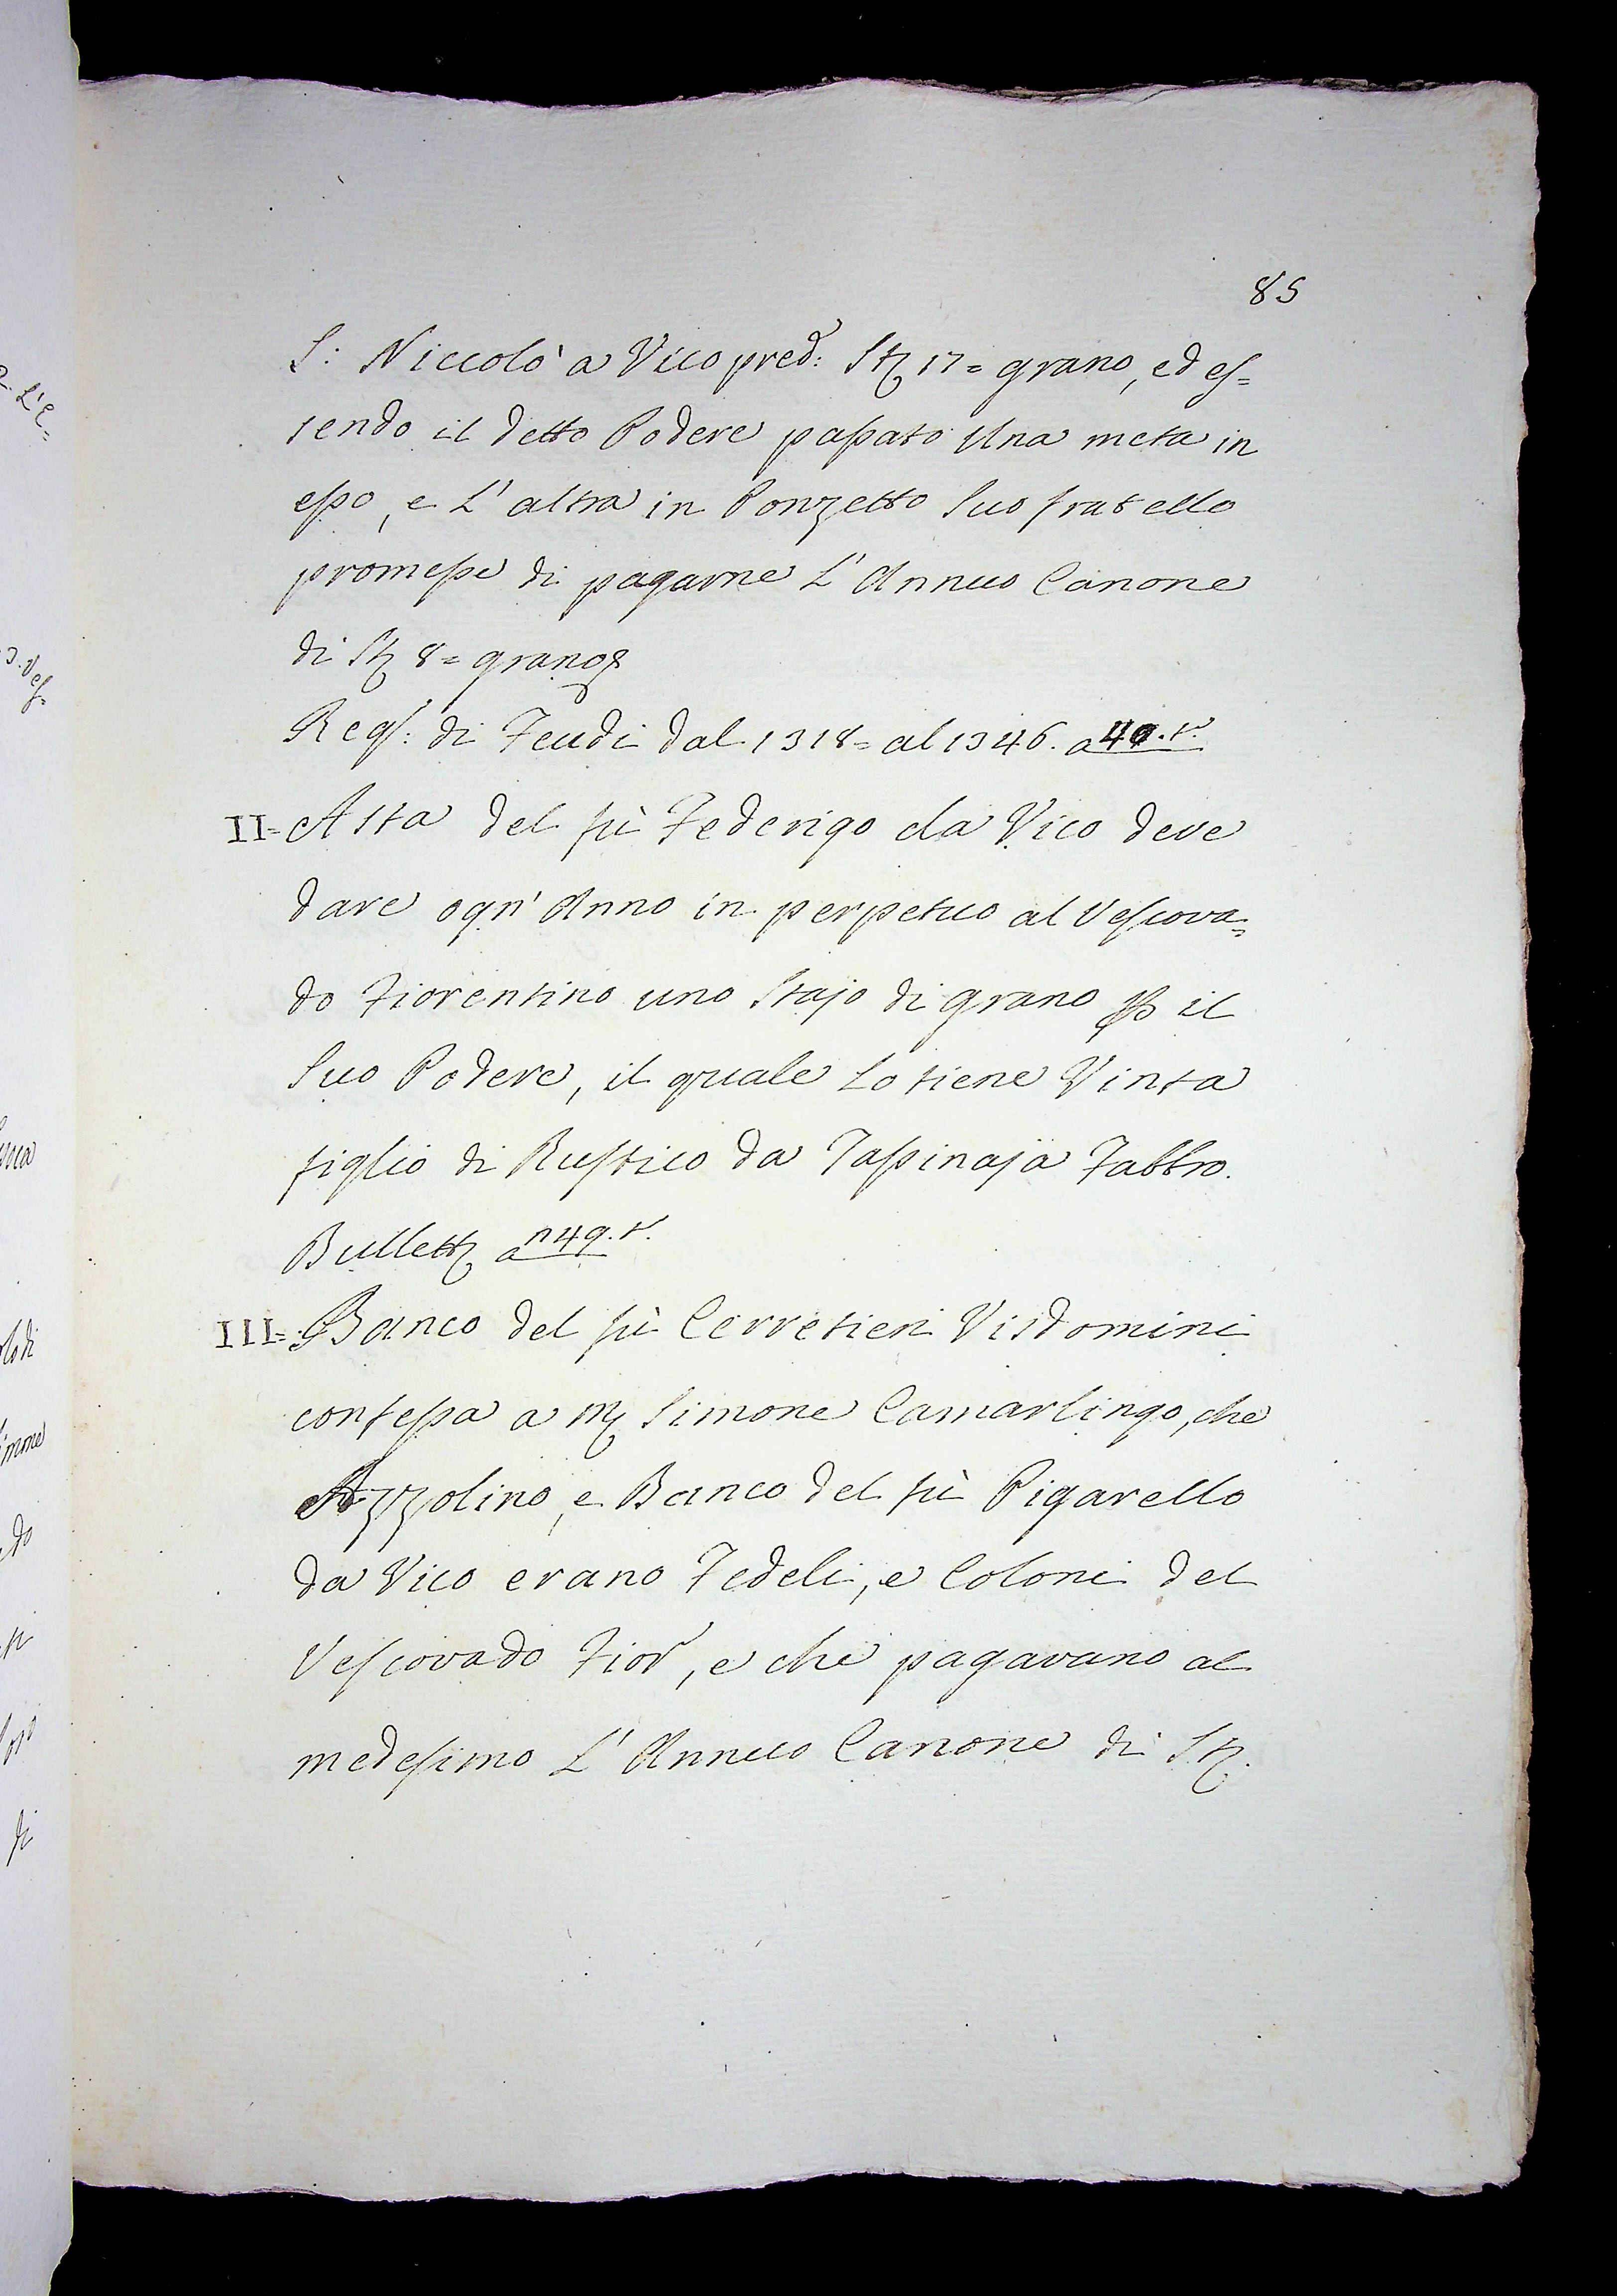 85
S: Niccolò a Vico pred: Sta 17= grano, ed es=
sendo il detto Podere passato Una meta in
esso, e L'altra in Ponzetto Suo fratello
promesse di pagarne L'Annuo Canone
di Sta 8= grano
Regs: di Feudi dal 1318= al 1346. a 40.t.
II= Asta del fù Federigo da Vico deve
dare ogn'Anno in perpetuo al Vescova=
do Fiorentino uno Stajo di grano p il
Suo Podere, il quale Lo tiene Vinta
figlio di Rustico da Tassinaja Fabbro.
Bullett a n49.t.
III= Banco del fù Cerretieri Visdomini
confessa a M Simone Camarlingo, che
Azzolino, e Banco del fù Pigarello
da Vico erano Fedeli, e Coloni del
Vescovado Fior, e che pagavano al
medesimo L'Annuo Canone di Sta.